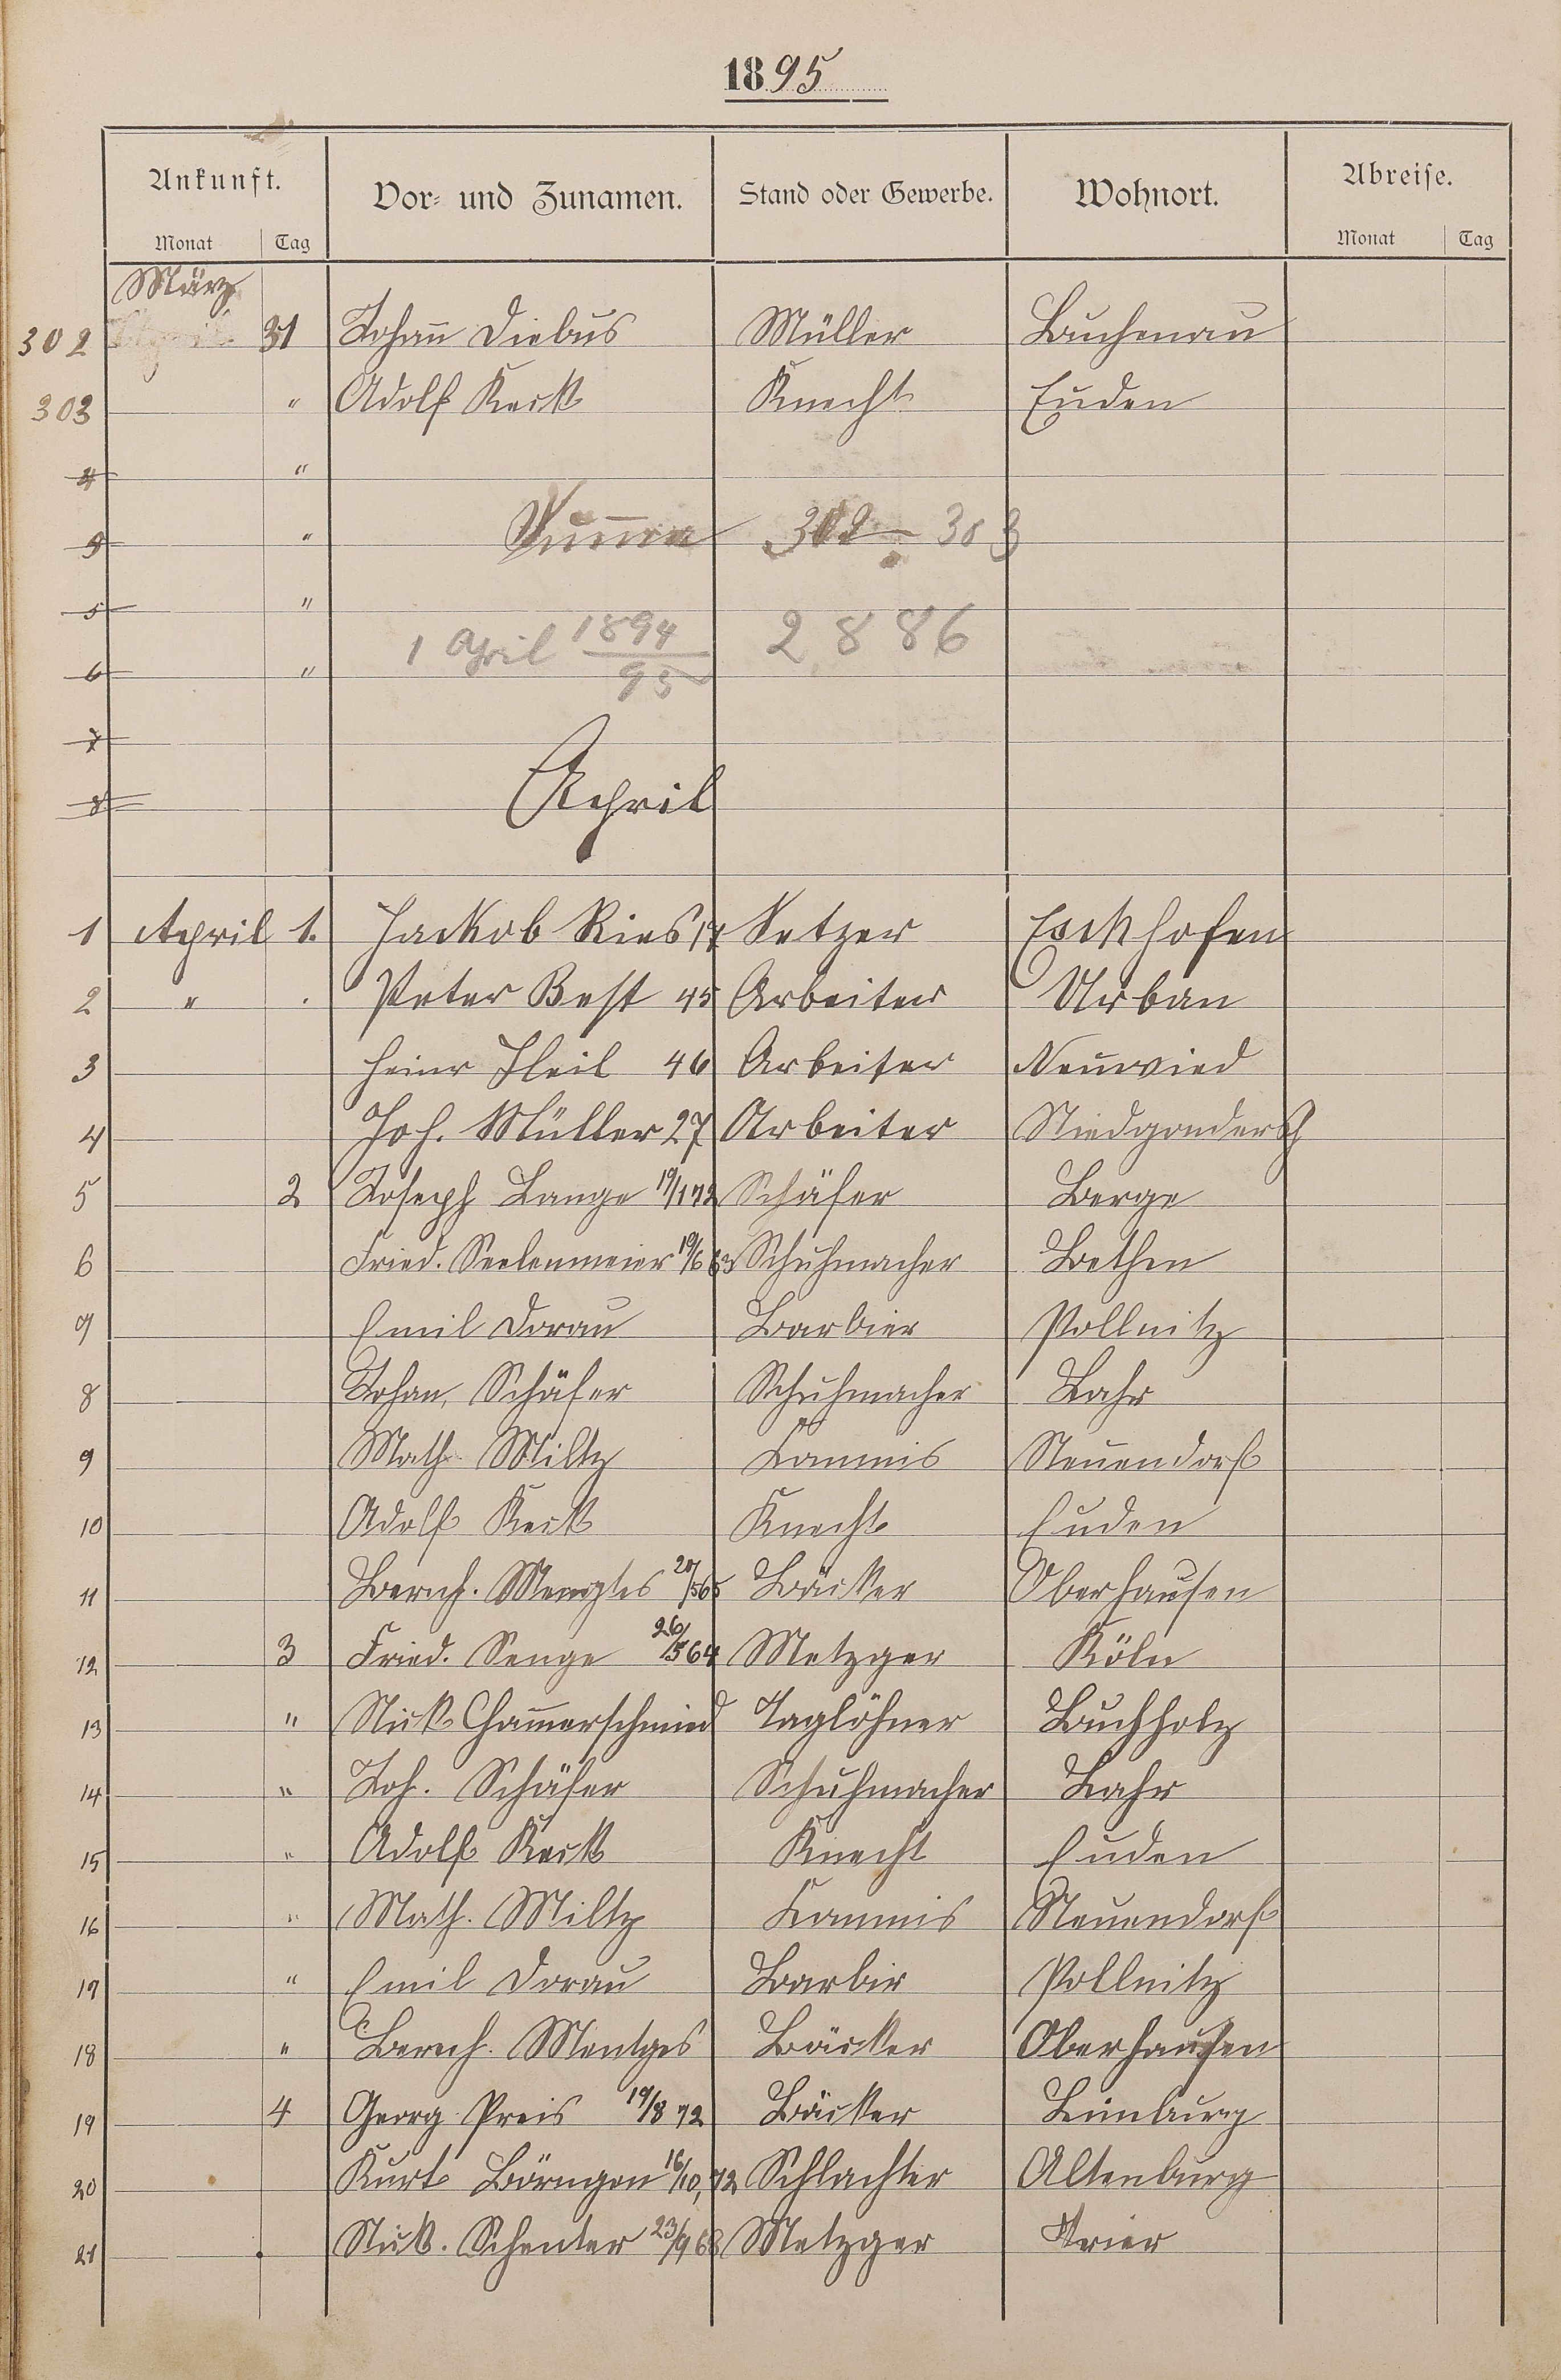 1895
Ankunft. Vor- und Zunamen. Stand oder Gewerbe. Wohnort. Abreise.
Monat Tag Monat Tag
März
302 31 Johan̄ Diebus Müller Buchenau
303 " Adolf Keck Knecht Euden
4 "
5 " Sum̄a 302 303
5 "
6 " 1 April 1894/95 2886
7
8 April
1 April 1. Jackob Ries 17 Setzer Eockhofen
2 " . Peter Best 45 Arbeiter Urban
3 Heinr Theil 46 Arbeiter Neuwied
4 Joh. Müller 27 Arbeiter Niedgondersh
5 2 Joseph Lange 19/1 72 Schäfer Berge
6 Fried. Seelenmeier 19/6 63 Schuhmacher Bethen
7 Emil Dorau Barbier Pollnitz
8 Johan, Schäfer Schuhmacher Lahr
9 Math. Miltz Kommis Neuendorf
10 Adolf Keck Knecht Euden
11 Bernh. Mentges 27/5 65 Bäcker Oberhausen
12 3 Fried. Senge 26/5 64 Metzger Köln
13 " Nick Chamerschmied Taglöhner Buchholz
14 " Joh. Schäfer Schuhmacher Lahr
15 " Adolf Keck Knecht Euden
16 " Math. Miltz Kommis Neuendorf
17 " Emil Dorau Barbir Pollnitz
18 " Bernh. Mentges Bäcker Oberhausen
19 4 Georg Preis 19/8 72 Bäcker Limburg
20 Kurt Börngen 16/10, 72 Schlachter Altenburg
21 Nick. Schenter 23/9 68 Metzger Trier